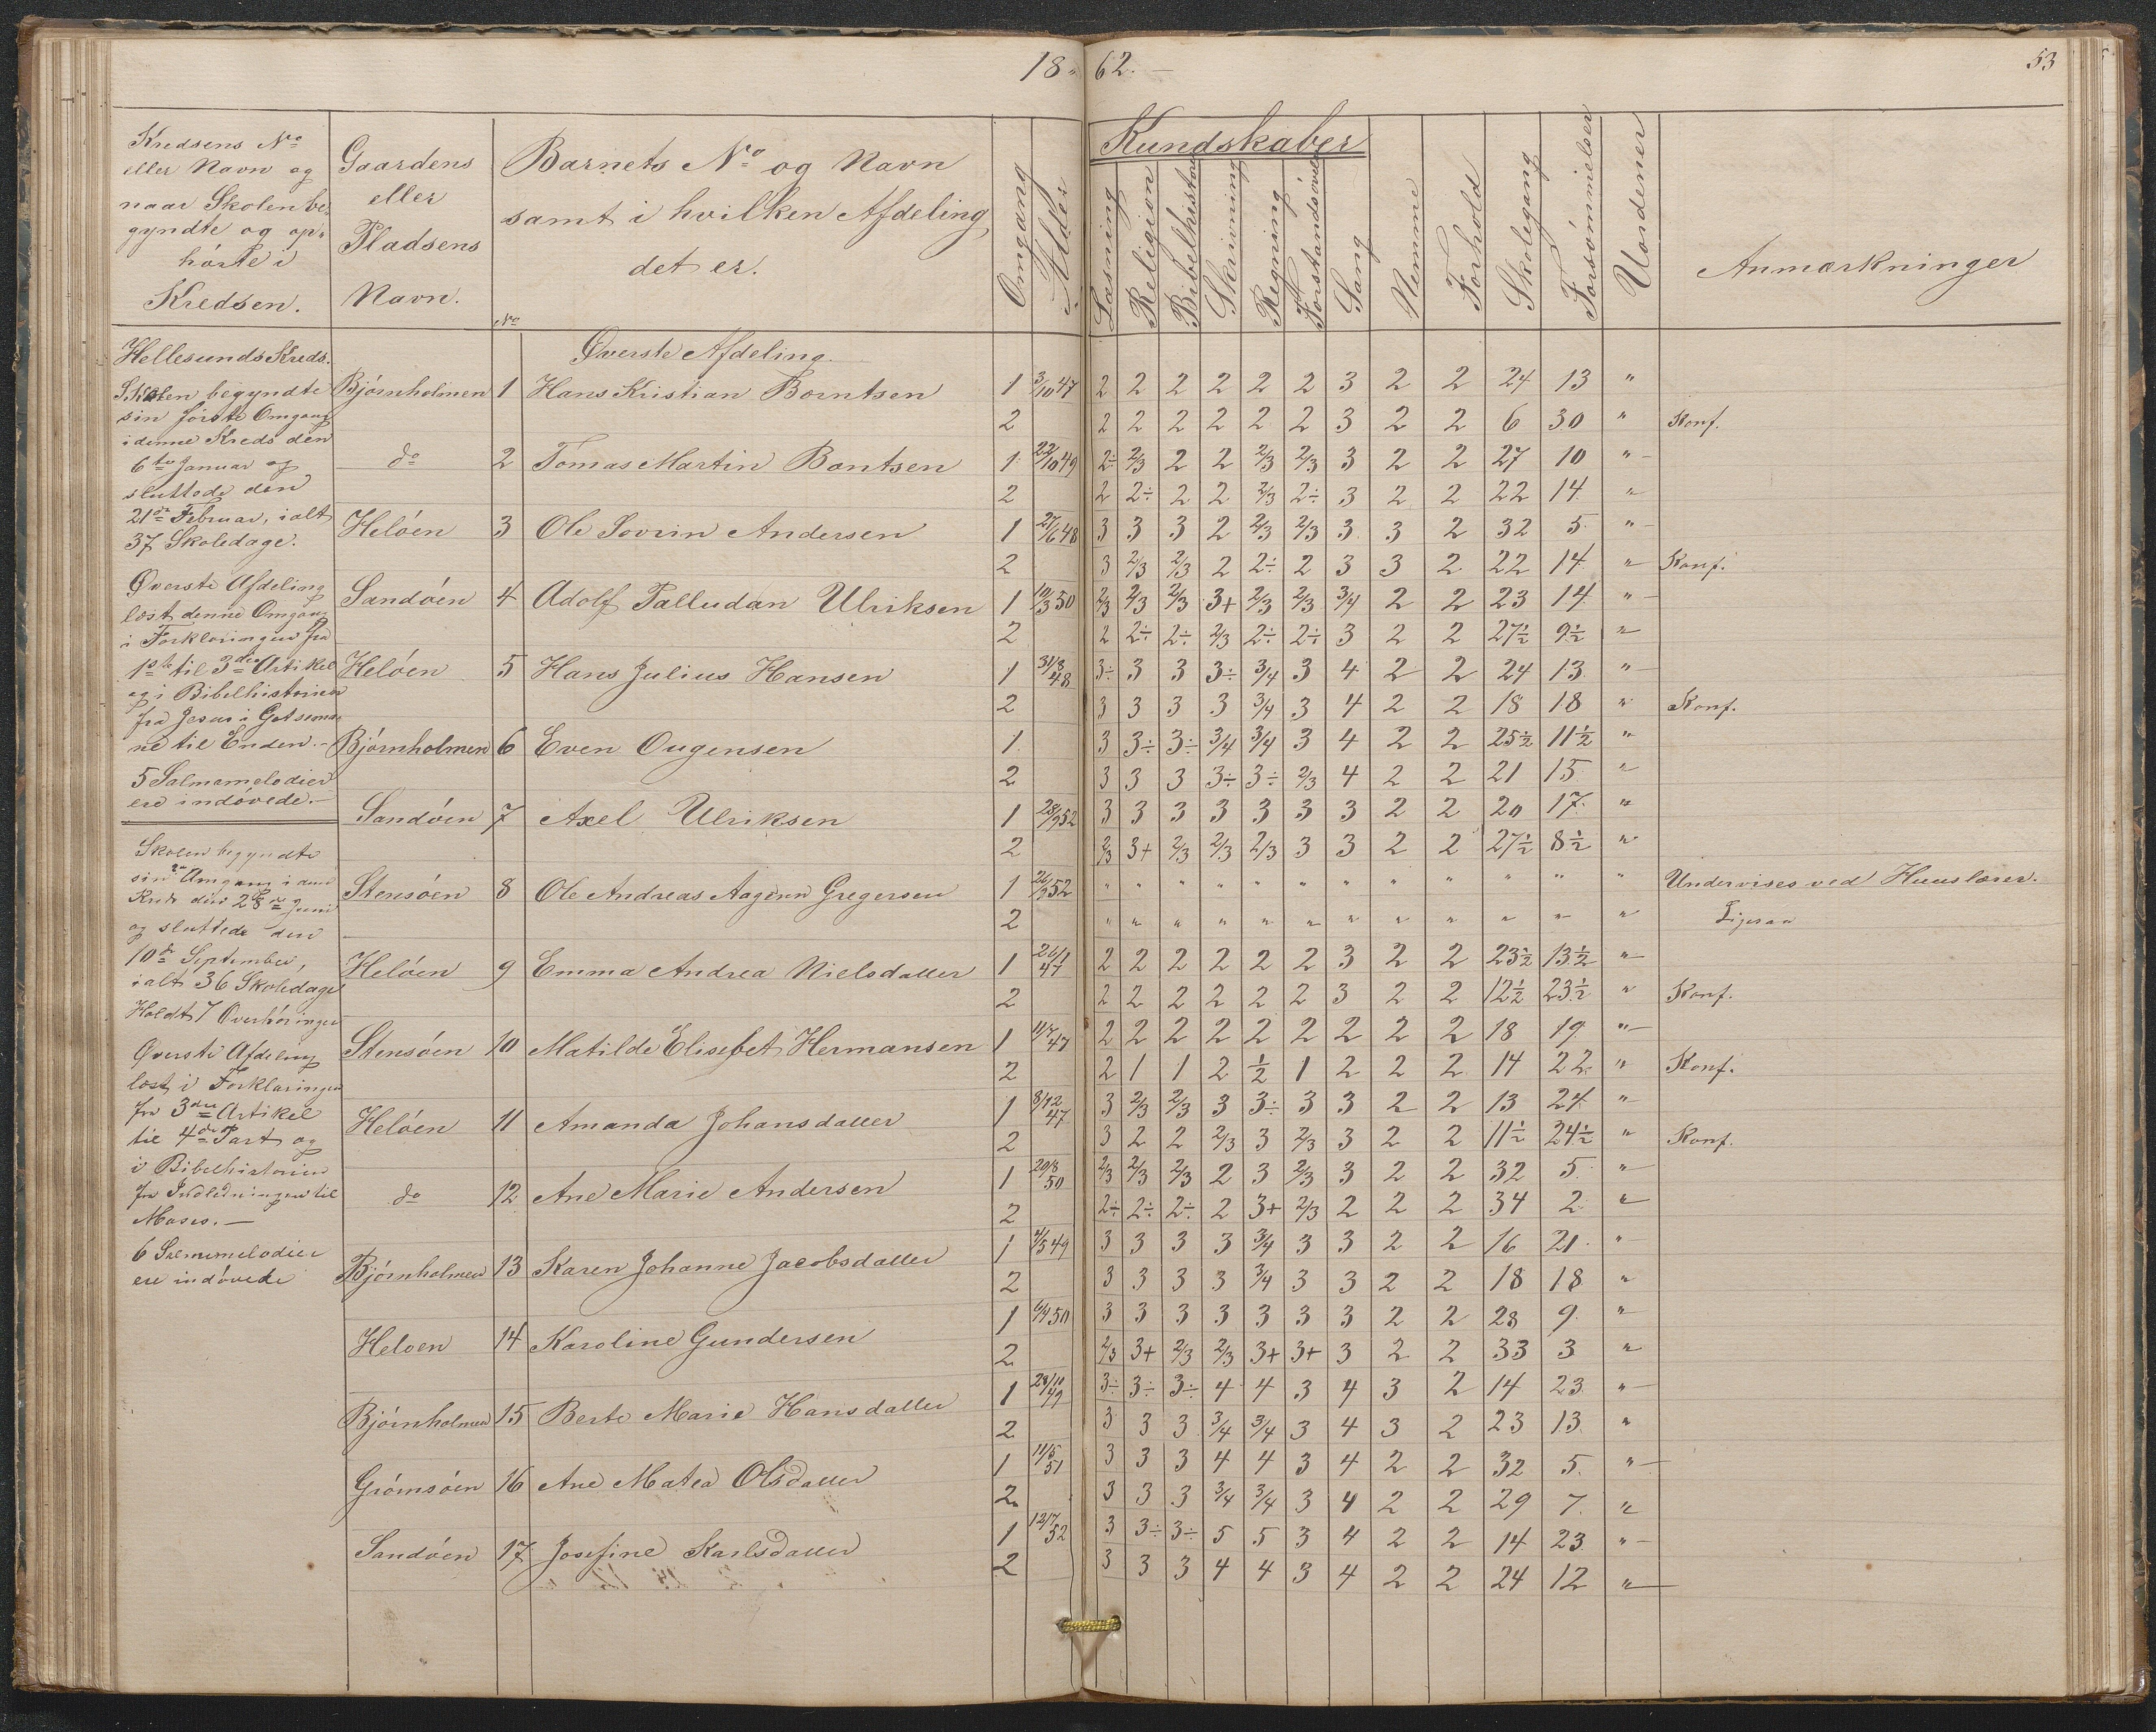 18 62. 53
Kredsens No eller Navn og naar Skolen begyndte og ophörte i Kredsen.
Gaardens eller Pladsens Navn.
Barnets No og Navn samt i hvilken Afdeling det er.
No
Omgang
Alder
Kundskaber
Læsning
Religion
Bibelhistorie
Skrivning
Regning
Forstandsövelse
Sang
Nemme
Forhold
Skolegang
Forsömmelser
Uordener
Anmærkninger
Hellesunds Kreds.
Skolen begyndte
sin förste Omgang
i denne Kreds den
6te Januar og
sluttede den
21de Februar, ialt
37 Skoledage.
Øverste Afdeling
læst denne Omgang
i Forklaringen fra
1ste til 3die Artikel
og i Bibelhistorien
fra Jesus i Getsema-
ne til Enden.-
5 Salmemelodier
ere indövede.-
Skolen begyndte
sin 2den Omgang i denne
Kreds den 28de Juni
og sluttede den
10de September,
ialt 36 Skoledage
Holdt 7 Overhöringer
Øverste Afdeling
læst i Forklaringen
fra 3die Artikel
til 4de Part og
i Bibelhistorien
fra Indledningen til
Moses.-
6 Salmemelodier
ere indövede
Øverste Afdeling.
Bjórnholmen 1 Hans Kristian Borntsen 1 3/10 47 2 2 2 2 2 2 3 2 2 24 13 "
2 2 2 2 2 2 2 3 2 2 6 30 " Konf.
do 2 Tomas Martin Bontsen 1 22/10 49 2÷ 2/3 2 2 2/3 2/3 3 2 2 27 10 "
2 2 2÷ 2 2 2/3 2÷ 3 2 2 22 14 "
Helóen 3 Ole Sovrin Andersen 1 27/6 48 3 3 3 2 2/3 2/3 3 3 2 32 5 "
2 3 2/3 2/3 2 2÷ 2 3 3 2 22 14 " Konf.
Sandóen 4 Adolf Palludan Ulriksen 1 10/3 50 2/3 2/3 2/3 3+ 2/3 2/3 3/4 2 2 23 14 "
2 2 2÷ 2÷ 2/3 2÷ 2÷ 3 2 2 27½ 9½ "
Helóen 5 Hans Julius Hansen 1 31/8 48 3÷ 3 3 3÷ 3/4 3 4 2 2 24 13 "
2 3 3 3 3 3/4 3 4 2 2 18 18 " Konf.
Bjórnholmen 6 Even Ougensen 1 3 3÷ 3÷ 3/4 3/4 3 4 2 2 25½ 11½ "
2 3 3 3 3÷ 3÷ 2/3 4 2 2 21 15 "
Sandóen 7 Axel Ulriksen 1 3 3 3 3 3 3 3 2 2 20 17 "
2 2/3 3+ 2/3 2/3 2/3 3 3 2 2 27½ 8½ "
Stensóen 8 Ole Andreas Gregersen 1 " " " " " " " " " " " " Undervises ved Huuslærer.
2 " " " " " " " " " " " " Ligesaa
Helóen 9 Emma Andrea Nielsdatter 1 26/1 47 2 2 2 2 2 2 3 2 2 23½ 13½ "
2 2 2 2 2 2 2 3 2 2 12½ 23½ " Konf.
Stensóen 10 Matilde Elisebet Hermansen 1 11/7 47 2 2 2 2 2 2 2 2 2 18 19 "
2 2 1 1 2 ½ 1 2 2 2 14 22 " Konf.
Helóen 11 Amanda Johansdatter 1 8/12 47 3 2/3 2/3 3 3÷ 3 3 2 2 13 24 "
2 3 2 2 2/3 3 2/3 3 2 2 11½ 24½ " Konf.
do 12 Ane Marie Andersen 1 20/8 50 2/3 2/3 2/3 2 3 2/3 3 2 2 32 5 "
2 2÷ 2÷ 2÷ 2 3+ 2/3 2 2 2 34 2 "
Bjórnholmen 13 Karen Johanne Jacobsdatter 1 4/5 49 3 3 3 3 3/4 3 3 2 2 16 21 "
2 3 3 3 3 3/4 3 3 2 2 18 18 "
Heloen 14 Karoline Gundersen 1 6/4 50 3 3 3 3 3 3 3 2 2 28 9 "
2 2/3 3+ 2/3 2/3 3+ 3+ 3 2 2 33 3 "
Bjórnholmen 15 Berte Marie Hansdatter 1 28/10 49 3÷ 3÷ 3÷ 4 4 3 4 3 2 14 23 "
2 3 3 3 3/4 3/4 3 4 3 2 23 13 "
Grómsóen 16 Ane Matea Olsdatter 1 11/5 51 3 3 3 4 4 3 4 2 2 32 5 "
2 3 3 3 3/4 3/4 3 4 2 2 29 7 "
Sandóen 17 Josefine Karlsdatter 1 12/7 52 3 3÷ 3÷ 5 5 3 4 2 2 14 23 "
2 3 3 3 4 4 3 4 2 2 24 12 "